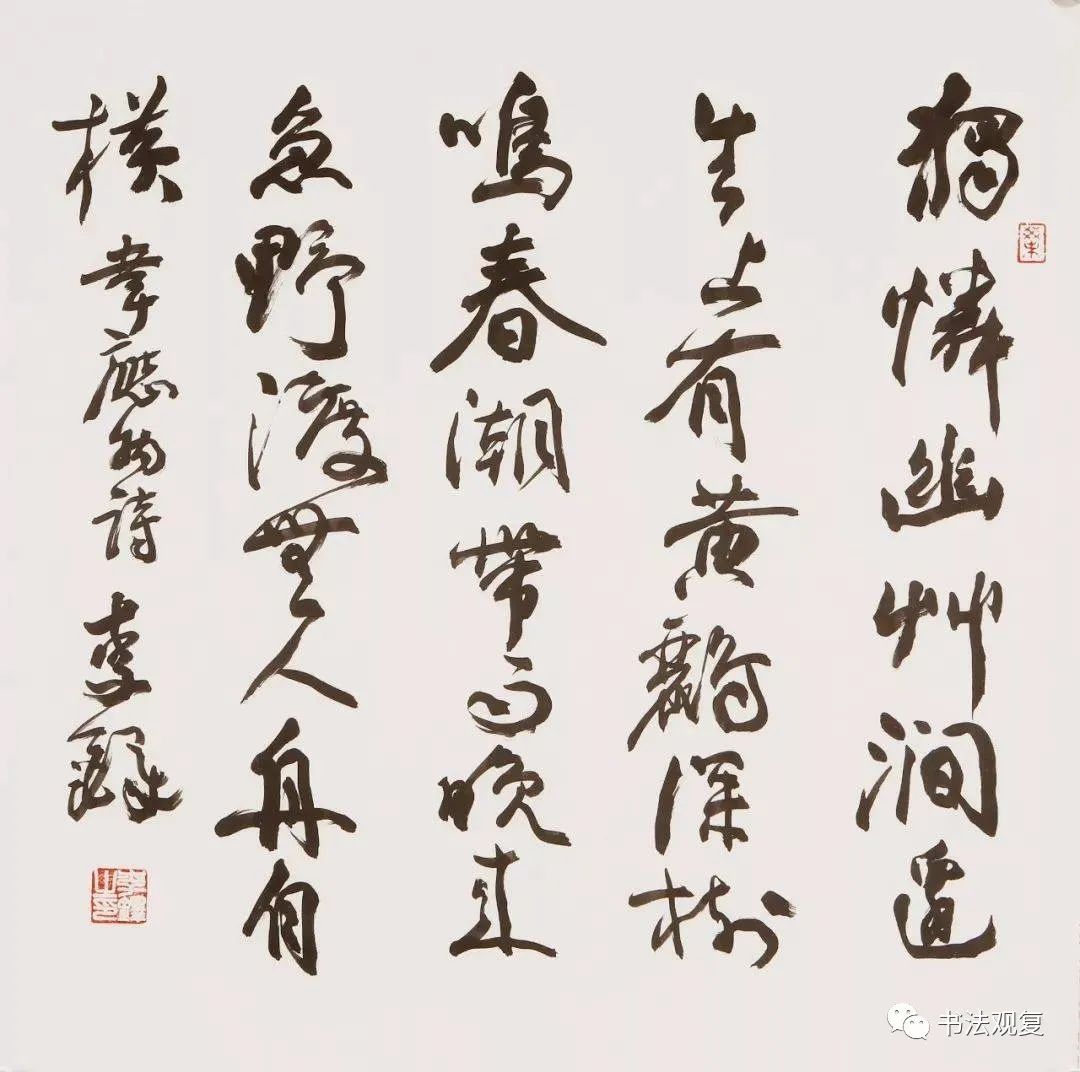 獨憐幽艸澗邊
生上有黄鸝深樹
鳴春潮帶雨晚来
急野渡無人舟自
横 韋應物詩 李鐸
李鐸之印
书法观复